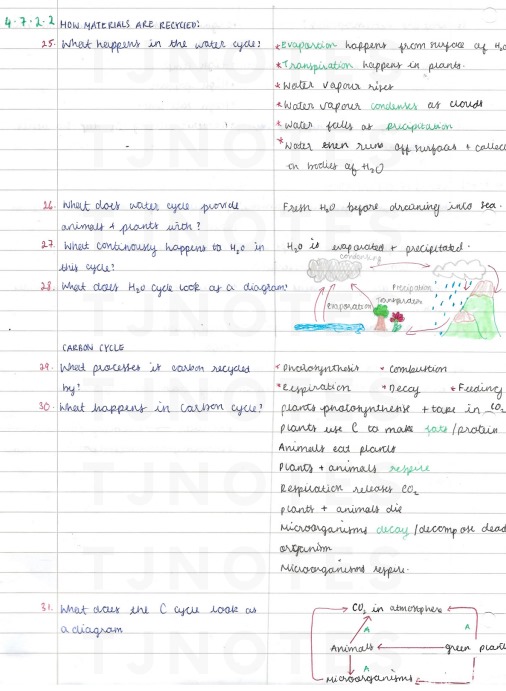 4.7.2.2 HOW MATERIALS ARE RECYCLED:
25. What happens in the water cycle?
* Evaporation happens from surface of H₂O
* Transpiration happens in plants.
* Water vapour rises
* Water vapour condenses as clouds
* Water falls as precipitation
* Water then runs off surfaces + collec
in bodies of H₂O
26. What does water cycle provide
animals + plants with?
Fresh H₂O before draining into sea.
27. What continously happens to H₂O in
this cycle?
H₂O is evaporated + precipitated.
28. What does H₂O cycle look as a diagram?
condensing
Precipitation
Transpiration
Evaporation
CARBON CYCLE
29. What processes is carbon recycled
by?
* Photosynthesis * Combustion
* Respiration * Decay * Feeding
30. What happens in carbon cycle?
plants photosynthesise + take in CO₂
plants use C to make fats/protein
Animals eat plants
Plants + animals respire
Respiration releases CO₂
plants + animals die
Microorganisms decay/decompose dead
organism
Microorganisms respire.
31. What does the C cycle look as
a diagram
CO₂ in atmosphere
A
A
Animals
green plant
A
Microorganisms
TJNOTES
TJNOTES
TJNOTES
TJNOTES
TJNOTES
TJNOTES